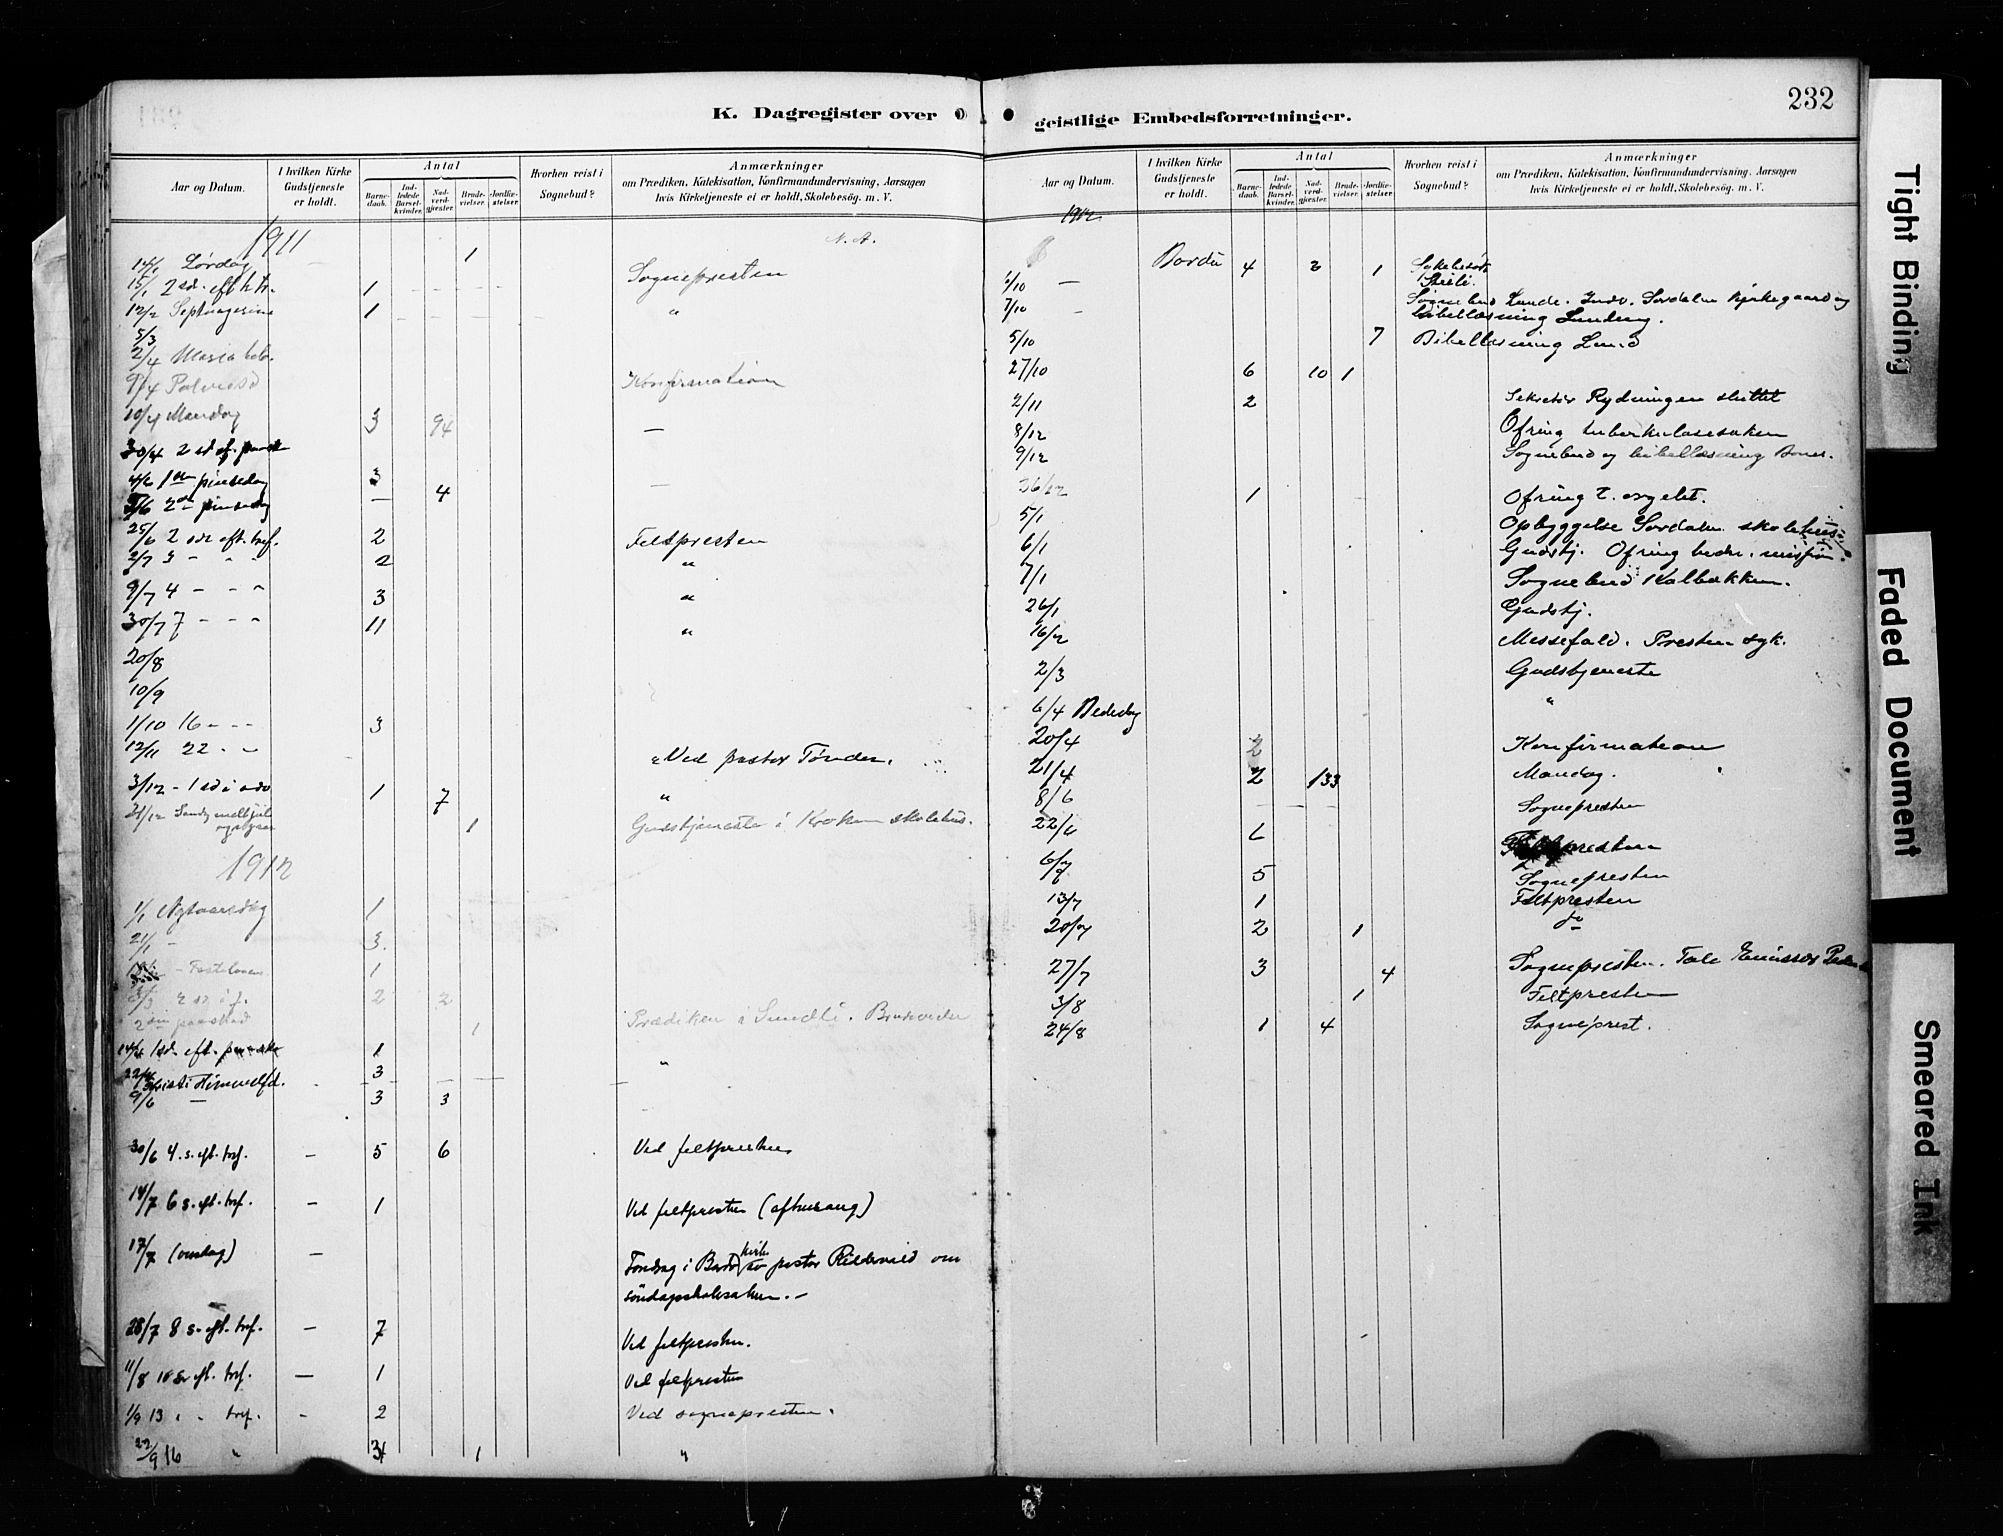 K. Dagregister over
geistlige Embedsforretninger.
232
Aar og Datum.
I hvilken Kirke Gudstjeneste er holdt.
Antal
Barnedaab.
Indledede Barselkvinder.
Nadverdgjester.
Brudevielser.
Jordfæstelser.
Hvorhen reist i Sognebud?
Anmærkninger
om Prædiken, Katekisation, Konfirmandundervisning, Aarsagen
hvis Kirketjeneste ei er holdt, Skolebesøg. m. V.
1911
14/1 Lørdag 1
15/1 2 sd. eft h tr. 1 Sognepresten
12/2 Septuagesima 1 "
5/3
2/4 Maria
9/4 Palmesd Konfirmation
10/4 Mandag 3 94 —
30/4 2 sd ef. paaske
4/6 1ste pinsedag 3
5/6 2den pinsedag — 4 —
25/6 2 sdr eft. tref. 2 Feltpresten
2/7 3 - - - 2 "
9/7 4 - - - 3 "
30/7 7 - - - 11 "
20/8
10/9
1/10 16 - - - 3
12/11 22 - - " Ved pastor Tønder.
3/12 - 1 sd i adv 1 7 "
31/12 1 Gudstjeneste i Kroken skolehus.
1912
1/1 Nytaarsdag 1
21/1 - 3.
- Fastelaven 1
3/3 2 sd i f. 2 2
2den paaskad 1 Prædiken i Sundli.
14/4 1 sd. eft. paaske 1 "
Kristi Himmelfd. 3
9/6 — 3 3 —
30/6 4. s. eft. tref. – 5 6 Ved feltpresten
14/7 6 s. eft. tref. – 1 Ved feltpresten (aftensang)
17/7 (onsdag) – Foredrag i Bardo kirke av pastor om
søndagsskolesaken. –
28/7 8 s. eft. tref. – 7 Ved feltpresten.
11/8 10 s. eft. tref. — 1 Ved feltpresten
1/9 13 " - tref. - 2 Ved sognepresten.
22/9 16 " 3 1 "
Aar og Datum.
I hvilken Kirke Gudstjeneste er holdt.
Antal
Barnedaab.
Indledede Barselkvinder.
Nadverdgjester.
Brudevielser.
Jordfæstelser.
Hvorhen reist i Sognebud?
Anmærkninger
om Prædiken, Katekisation, Konfirmandundervisning, Aarsagen
hvis Kirketjeneste ei er holdt, Skolebesøg. m. V.
1912
Bardu 4 1
/10 —
7/10 - Sognebud Lunde. Indv. Sørdalen kirkegaard og
bibellæsning
5/10 7 Bibellæsning Lund
27/10 6 10 1
2/11 2 Sekretær Rydningen sluttet
8/12 Ofring tuberkulosesaken
9/12 Sognebud og bibellæsning Bones.
26/12 1 Ofring t. orgelet.
5/1 Opbyggelse Sørdalen skolehus
6/1 Gudstj. Ofring hedn. misjon.
7/1 Sognebud Kalbækken.
26/1 Gudstj.
16/2 Messefald. Presten syk.
2/3 Gudstjeneste
6/4 Bededag "
20/4 2 Konfirmation
21/4 2 133 Mandag.
8/6 — — — Sognepresten
22/6 6 Feltpresten
6/7 5 Sognepresten
13/7 1 Feltpresten
20/7 2 1 do
27/7 3 4 Sognepresten. Tale Emissær
3/8 1 Feltpresten
24/8 1 4 Sogneprest.
Tight Binding
Faded Document
Smeared Ink